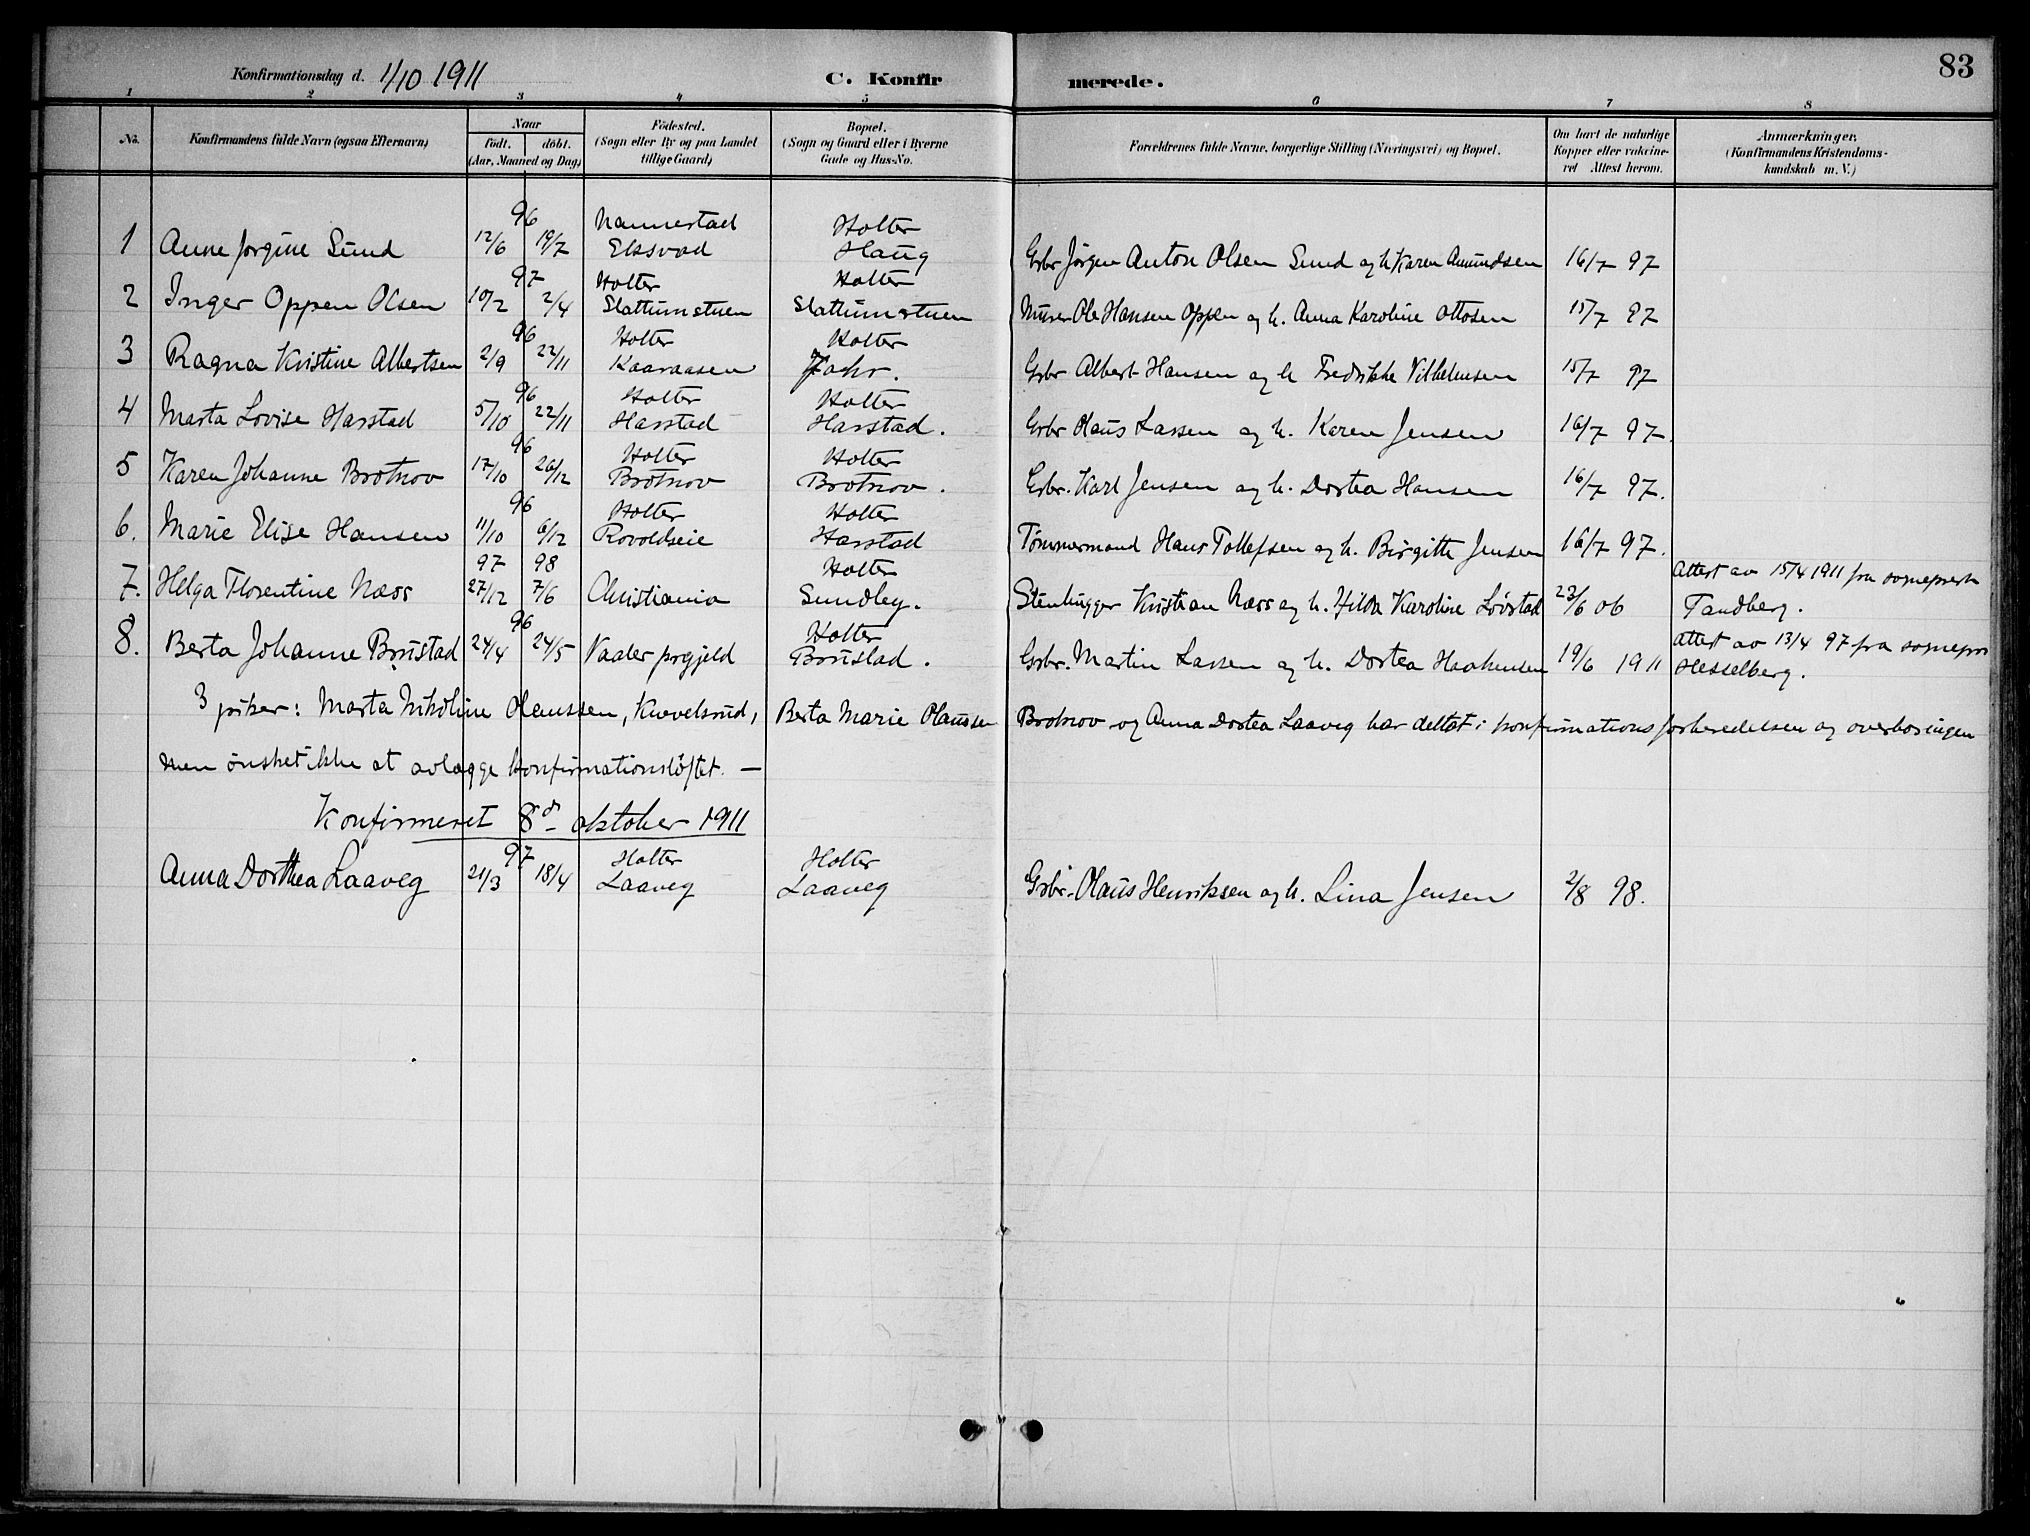 83
Konfirmationsdag d. 1/10 1911 C. Konfirmerede.
1 2 3 4 5 6 7 8
No. Konfirmandens fulde Navn (ogsaa Efternavn) Naar født. døbt. (Aar, Maaned og Dag) Fødested. (Sogn eller By og paa Landet tillige Gaard) Bopæl. (Sogn og Gaard eller i Byerne Gade og Hus-No. Forældrenes fulde Navne, borgerlige Stilling (Næringsvei) og Bopæl. Om havt de naturlige Kopper eller vakcineret Attest herom. Anmærkninger. (Konfirmandens Kristendomskundskab m. V.)
96 Nannestad Holter
1 Anne Jørgine Sund 12/6 19/7 Elsvad Haug Gbr Jørgen Anton Olsen Sund og h. Karen Amundsen 16/7 97
97 Holter Holter
2 Inger Oppen Olsen 10/2 2/4 Slattumstuen Slattumstuen Murer Ole Hansen Oppen og h. Anna Karoline Ottosen 15/7 97
96 Holter Holter
3 Ragna Kristine Albertsen 2/9 22/11 Kaaraasen Jahr. Gbr Albert Hansen og h Fredrikke Vilhelmsen 15/7 97
96 Holter Holter
4 Marta Lovise Harstad 5/10 22/11 Harstad Harstad. Gbr Olaus Larsen og h. Karen Jensen 16/7 97.
96 Holter Holter
5 Karen Johanne Brotnov 17/10 26/12 Brotnov Brotnov. Gbr. Karl Jensen og h. Dortea Hansen 16/7 97.
96 Holter Holter
6. Marie Elise Hansen 11/10 6/12 Rovoldseie Harstad Tømmermand Hans Tollefsen og h. Birgitte Jensen 16/7 97.
97 98 Holter Attest av 15/4 1911 fra sogneprest
7. Helga Florentine Næss 27/12 7/6 Christiania Sundby. Stenhugger Kristian Næss og h. Hilda Karoline Løvstad 23/6 06 Tandberg.
96 Holter attest av 13/4 97 fra sognepr
8. Berta Johanne Brustad 24/4 24/5 Vaaler prgjeld Brustad. Gbr. Martin Larsen og h. Dortea Haakensen 19/6 1911 Hesselberg.
3 piker: Marta Nikoline Olaussen, Kvevelsrud, Berta Marie Olaussen Brotnov og Anna Dortea Laaveg har deltat i konfirmationsforberedelsen og overhøringen
men ønsket ikke at avlægge konfirmationsløftet. —
Konfirmeret 8de oktober 1911
97 Holter Holter
Anna Dorthea Laaveg 21/3 18/4 Laaveg Laaveg Gbr. Olaus Henriksen og h. Lina Jensen 2/8 98.